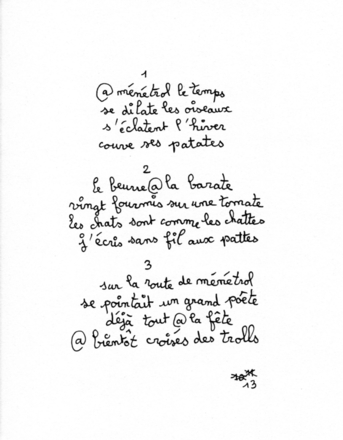 1
@ ménétrol le temps
se dilate les oiseaux
s'éclatent l'hiver
couve ses patates
2
le beurre @ la barate
vingt fourmis sur une tomate
les chats sont comme les chattes
j'écris sans fil aux pattes
3
sur la route de ménétrol
se pointait un grand poète
déjà tout @ la fête
@ bientôt croisés des trolls
13